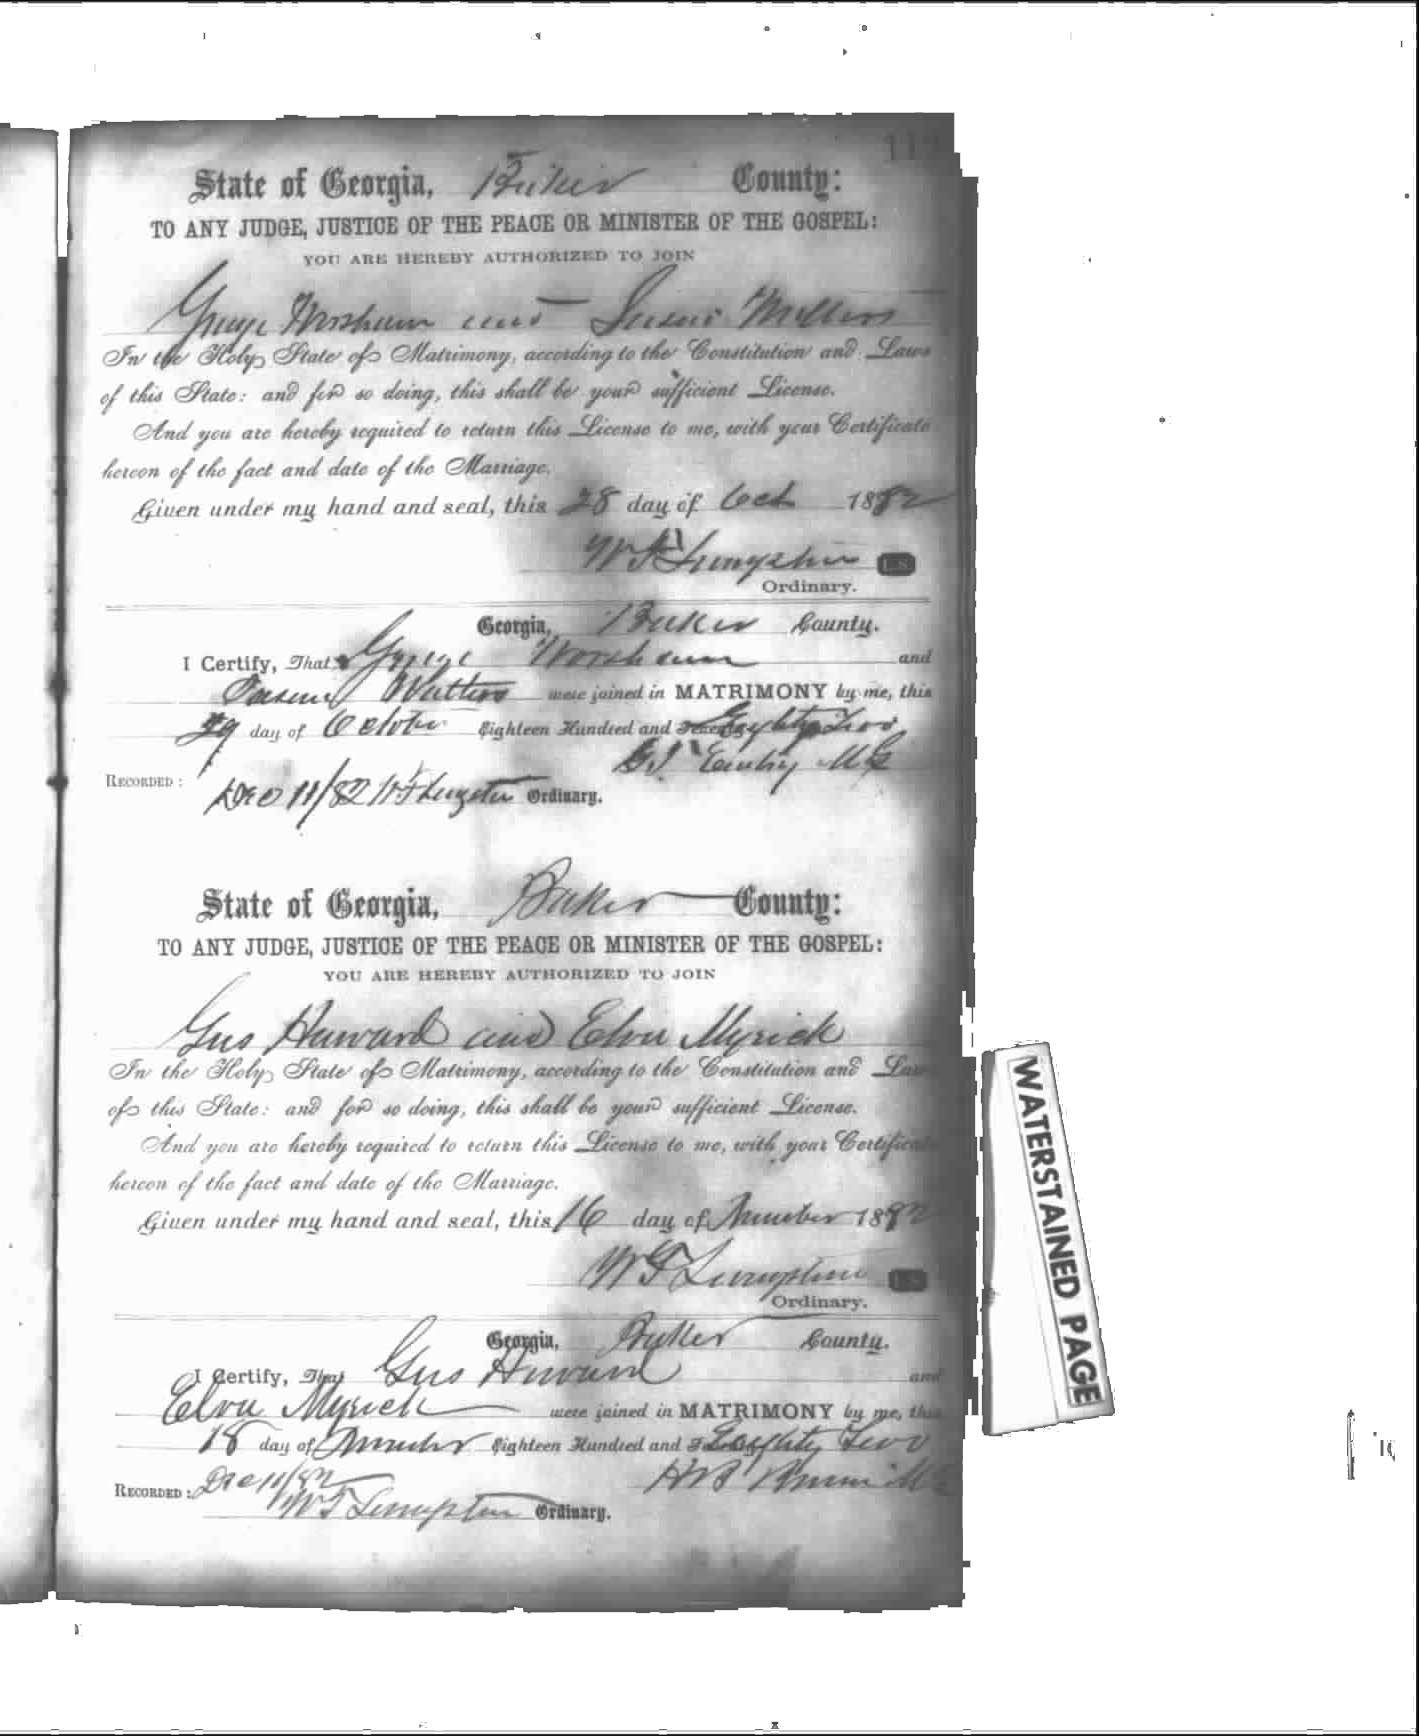 State of Georgia, Baker County:
TO ANY JUDGE, JUSTICE OF THE PEACE OR MINISTER OF THE GOSPEL:
YOU ARE HEREBY AUTHORIZED TO JOIN
George Worsham and
In the Holy State of Matrimony, according to the Constitution and Laws
of this State: and for so doing, this shall be your sufficient License.
And you are hereby required to return this License to me, with your Certificate
hereon of the fact and date of the Marriage.
Given under my hand and seal, this 28 day of Oct 1882
L.S.
Ordinary.
Georgia, Baker County.
I Certify, That George Worsham and
were joined in MATRIMONY by me, this
29 day of October Eighteen Hundred and Eighty Two
M G
RECORDED: Dec 11/82 Ordinary.
State of Georgia, Baker County:
TO ANY JUDGE, JUSTICE OF THE PEACE OR MINISTER OF THE GOSPEL:
YOU ARE HEREBY AUTHORIZED TO JOIN
Gus Howard and Elva Myrick
In the Holy State of Matrimony, according to the Constitution and Law
of this State: and for so doing, this shall be your sufficient License.
And you are hereby required to return this License to me, with your Certificat
hereon of the fact and date of the Marriage.
Given under my hand and seal, this 16 day of November 1882
Ordinary.
Georgia, Baker County.
I Certify, That Gus Howard and
Elva Myrick were joined in MATRIMONY by me, this
18 day of November Eighteen Hundred and Eighty Two
RECORDED: Dec 11/82
Ordinary.
WATERSTAINED PAGE